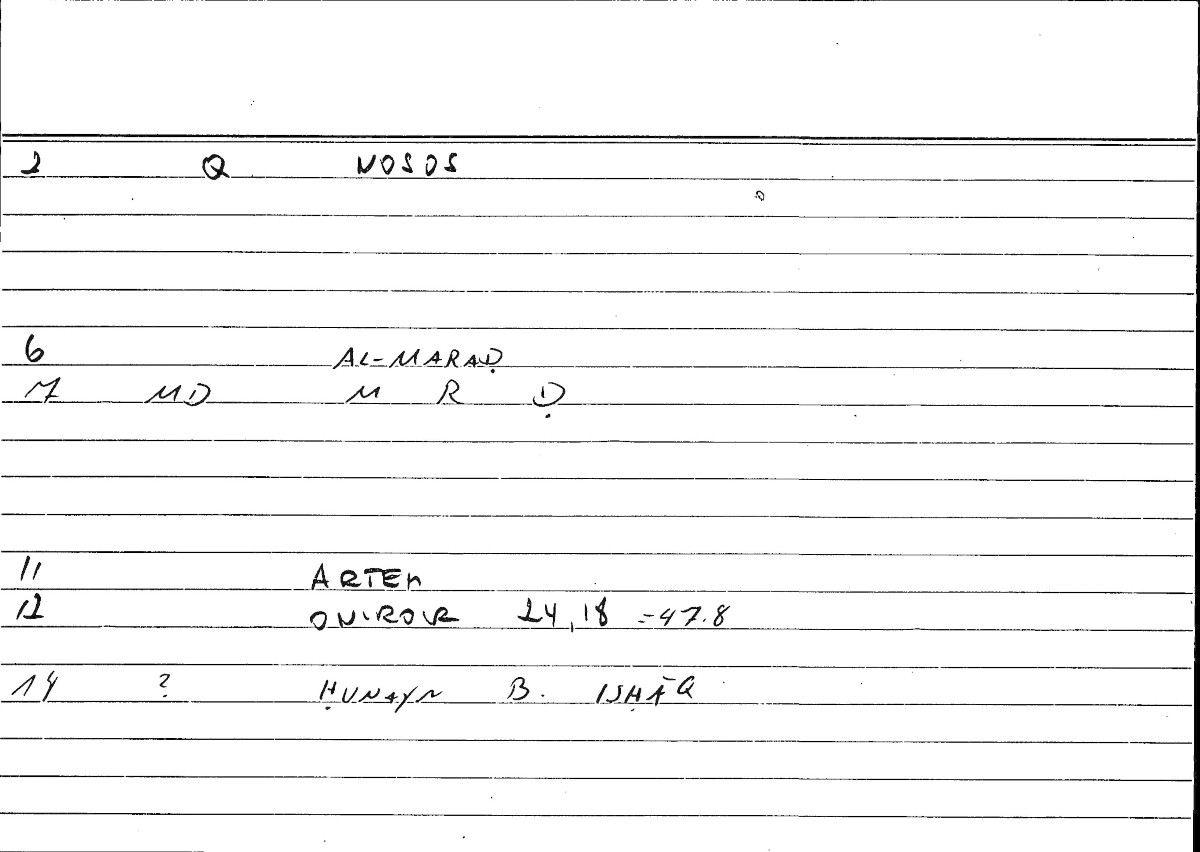 2 Q NOSOS
6 AL-MARAḌ
7 MD M R Ḍ
11 ARTEM
12 ONIROCR 24,18 = 47.8
14 ? ḤUNAYN B. ISḤĀQ